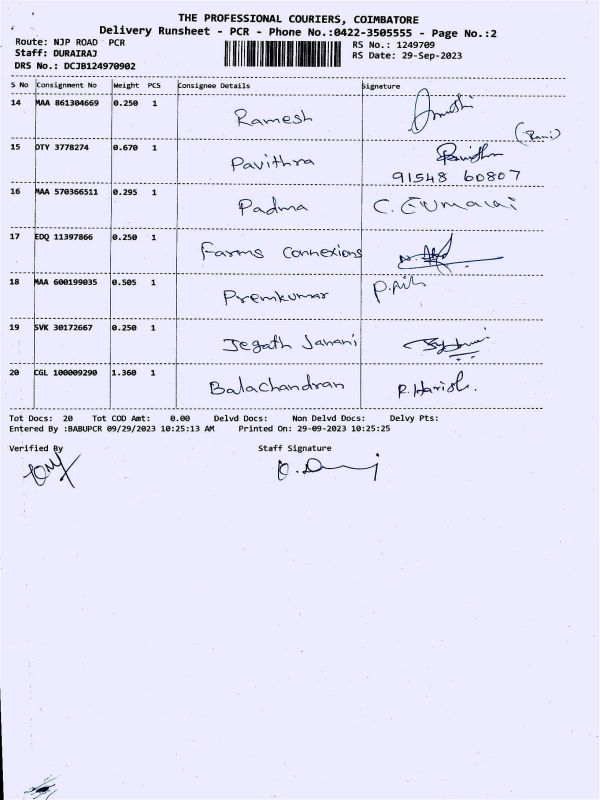 THE PROFESSIONAL COURIERS, COIMBATORE
Delivery Runsheet - PCR - Phone No.:0422-3505555 - Page No.:2
Route: NJP ROAD PCR RS No.: 1249709
Staff: DURAIRAJ RS Date: 29-Sep-2023
DRS No.: DCJB124970902
S No Consignment No Weight PCS Consignee Details Signature
14 MAA 861304669 0.250 1 Ramesh
15 OTY 3778274 0.670 1 Pavithra
91548 60807
16 MAA 570366511 0.295 1 Padma
17 EDQ 11397866 0.250 1 Farms Connexions
18 MAA 600199035 0.505 1 Premkumar
19 SVK 30172667 0.250 1 Jegath Janani
20 CGL 100009290 1.360 1 Balachandran R. Harish.
Tot Docs: 20 Tot COD Amt: 0.00 Delvd Docs: Non Delvd Docs: Delvy Pts:
Entered By :BABUPCR 09/29/2023 10:25:13 AM Printed On: 29-09-2023 10:25:25
Verified By Staff Signature